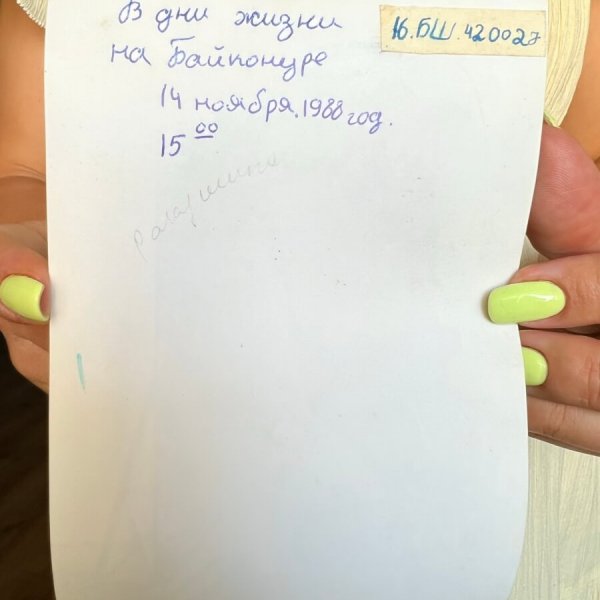 В дни жизни
на Байконуре
14 ноября.1988 год.
15 00
16.БШ.420027